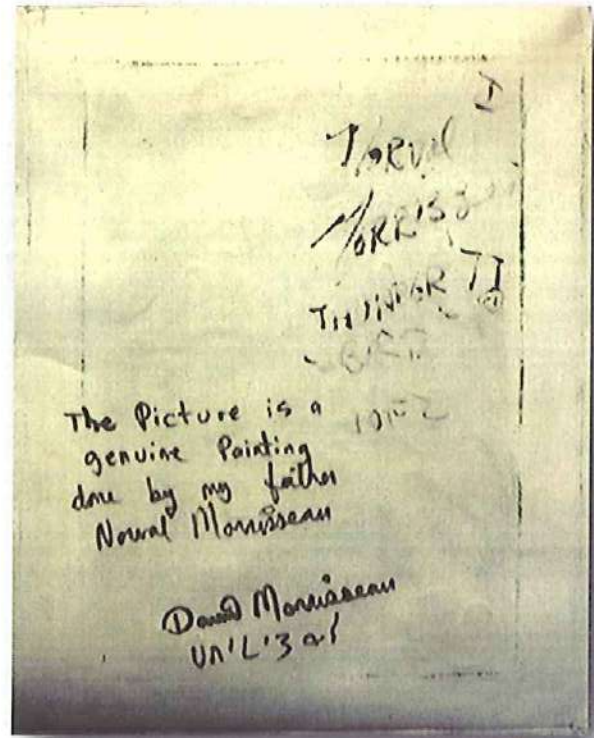 I
NORVAL
MORRISS
THUNDER II
BIRD
The Picture is a
genuine Painting
done by my father
Norval Morrisseau
David Morrisseau